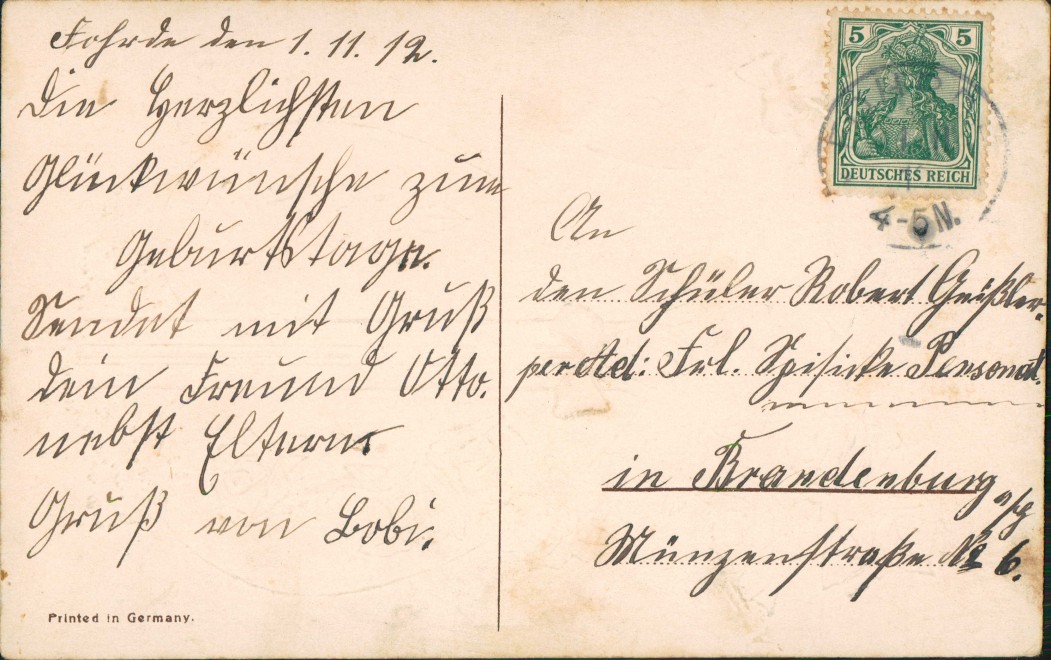 Fohrde den 1. 11. 12.
Die Herzlichsten
Glückwünsche zum
Geburtstage.
Sendet mit Gruß
dein Freund Otto.
nebst Eltern
Gruß von Bobi.
Printed in Germany.
5 5
DEUTSCHES REICH
4-5N.
An
den Schüler Robert Geißler.
per Ad: Frl. Spisicke
in Brandenburg a/H
Münzenstraße № 6.